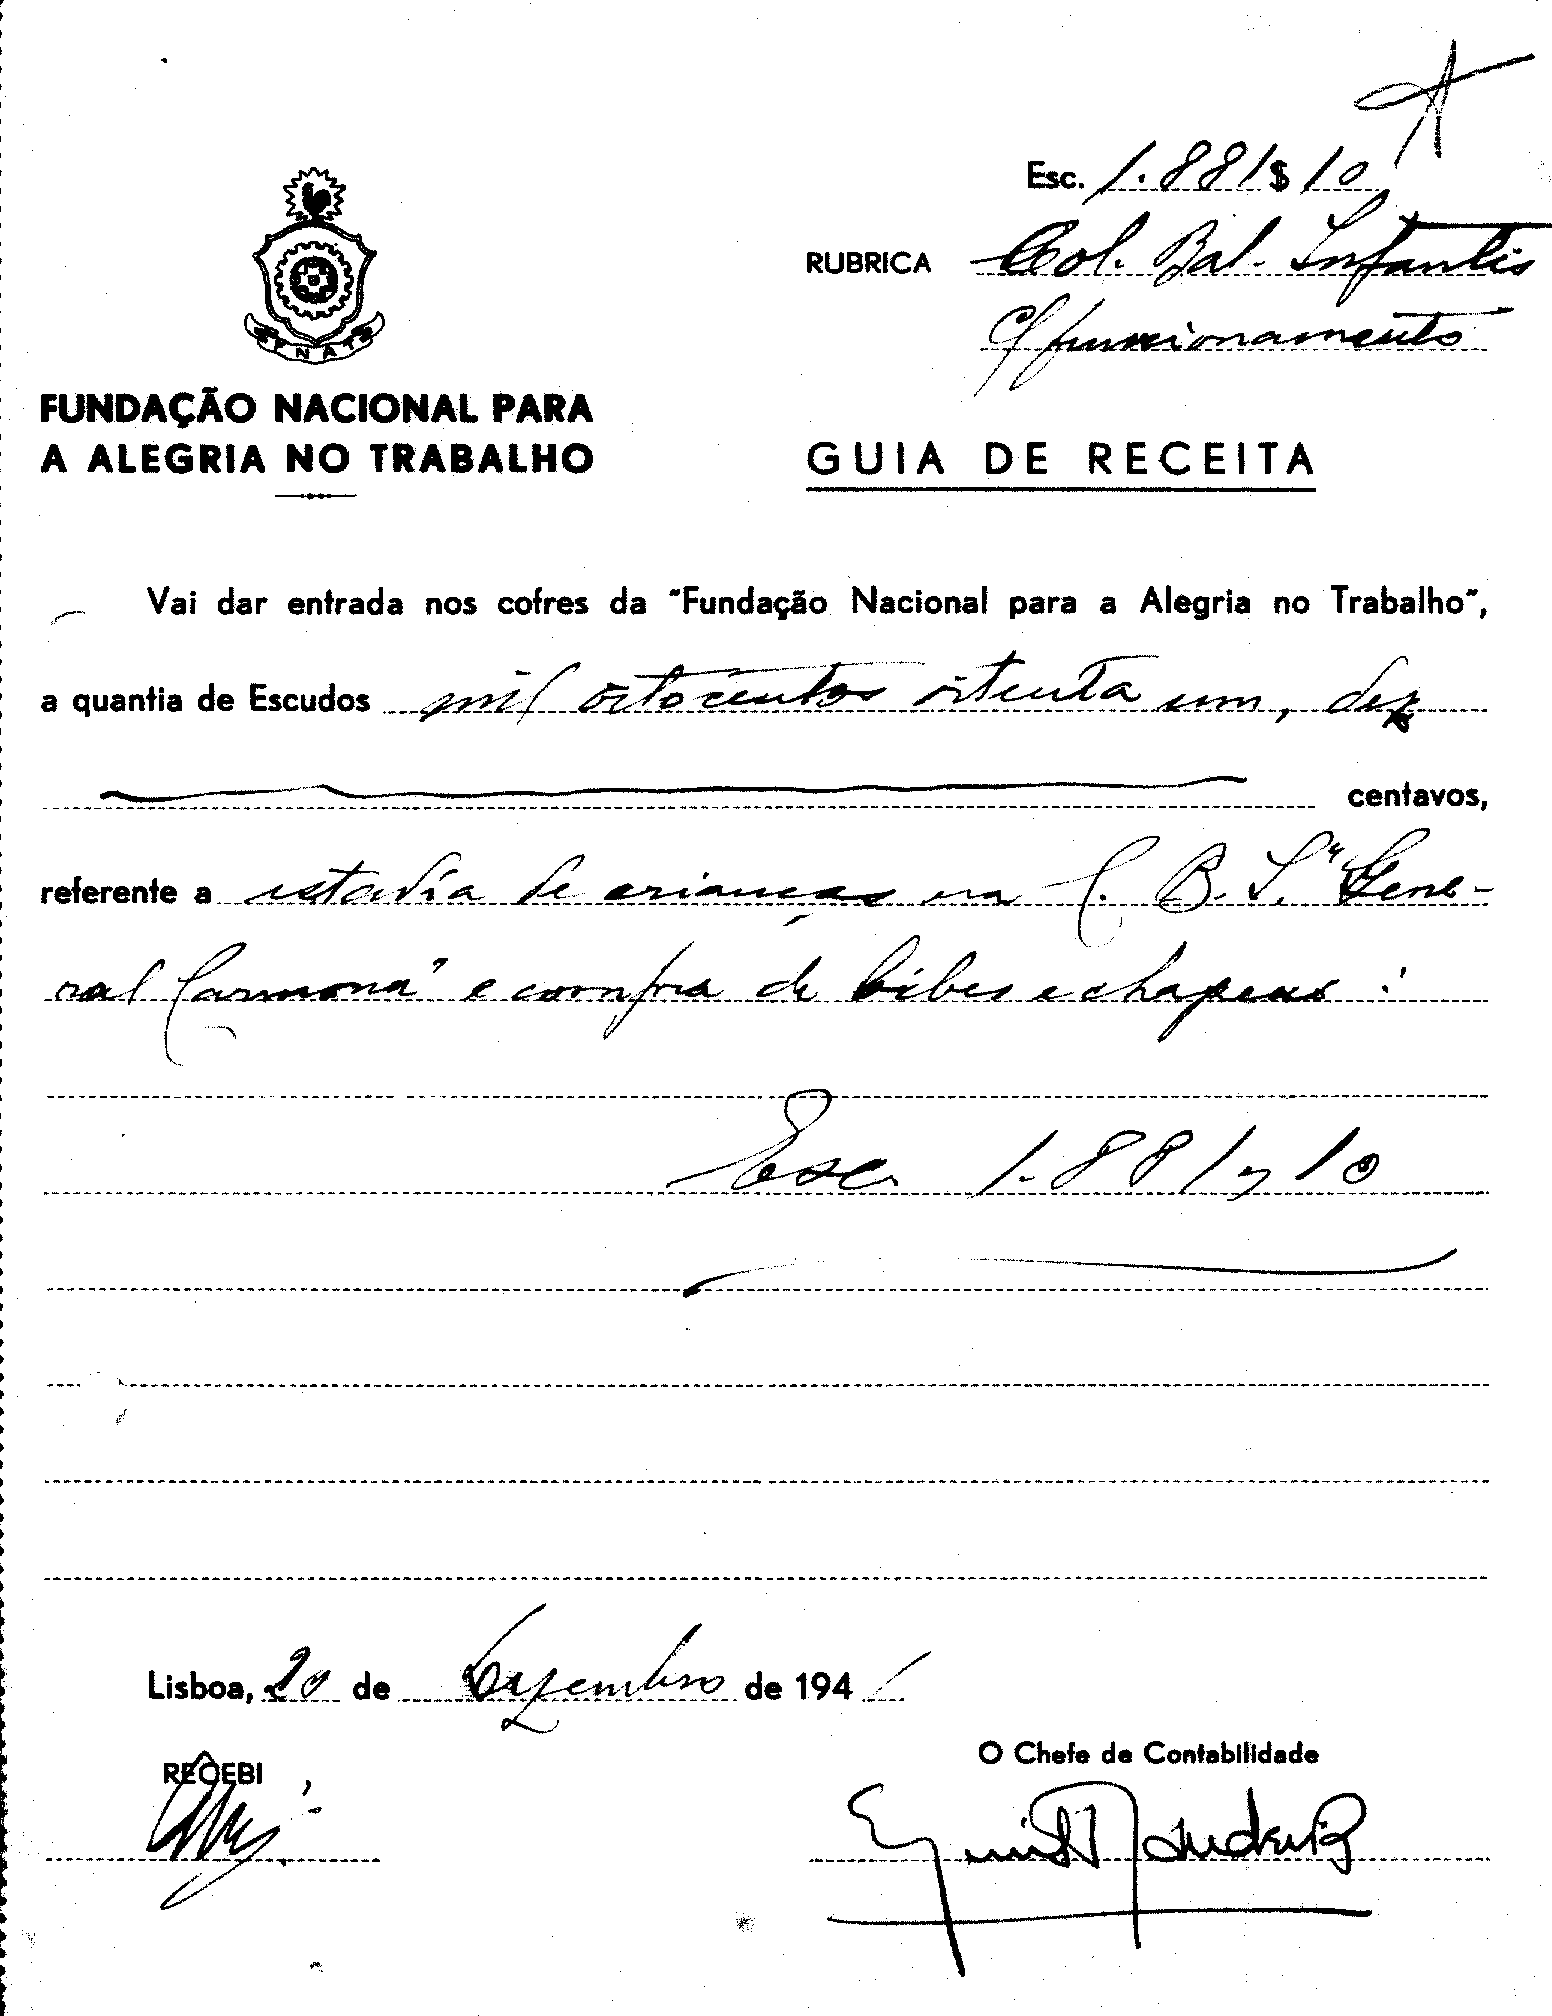 Esc. 1.881$10
RUBRICA Col. Bal. Infantis
c/ funcionamento
FNAT
FUNDAÇÃO NACIONAL PARA
A ALEGRIA NO TRABALHO
GUIA DE RECEITA
Vai dar entrada nos cofres da "Fundação Nacional para a Alegria no Trabalho",
a quantia de Escudos mil oitocentos oitenta um, dez
centavos,
referente a estadia de crianças na C. B. I. "Gene-
ral Carmona" e compra de bibes e chapeus :
Esc. 1.881$10
Lisboa, 20 de Dezembro de 1941
RECEBI
O Chefe da Contabilidade